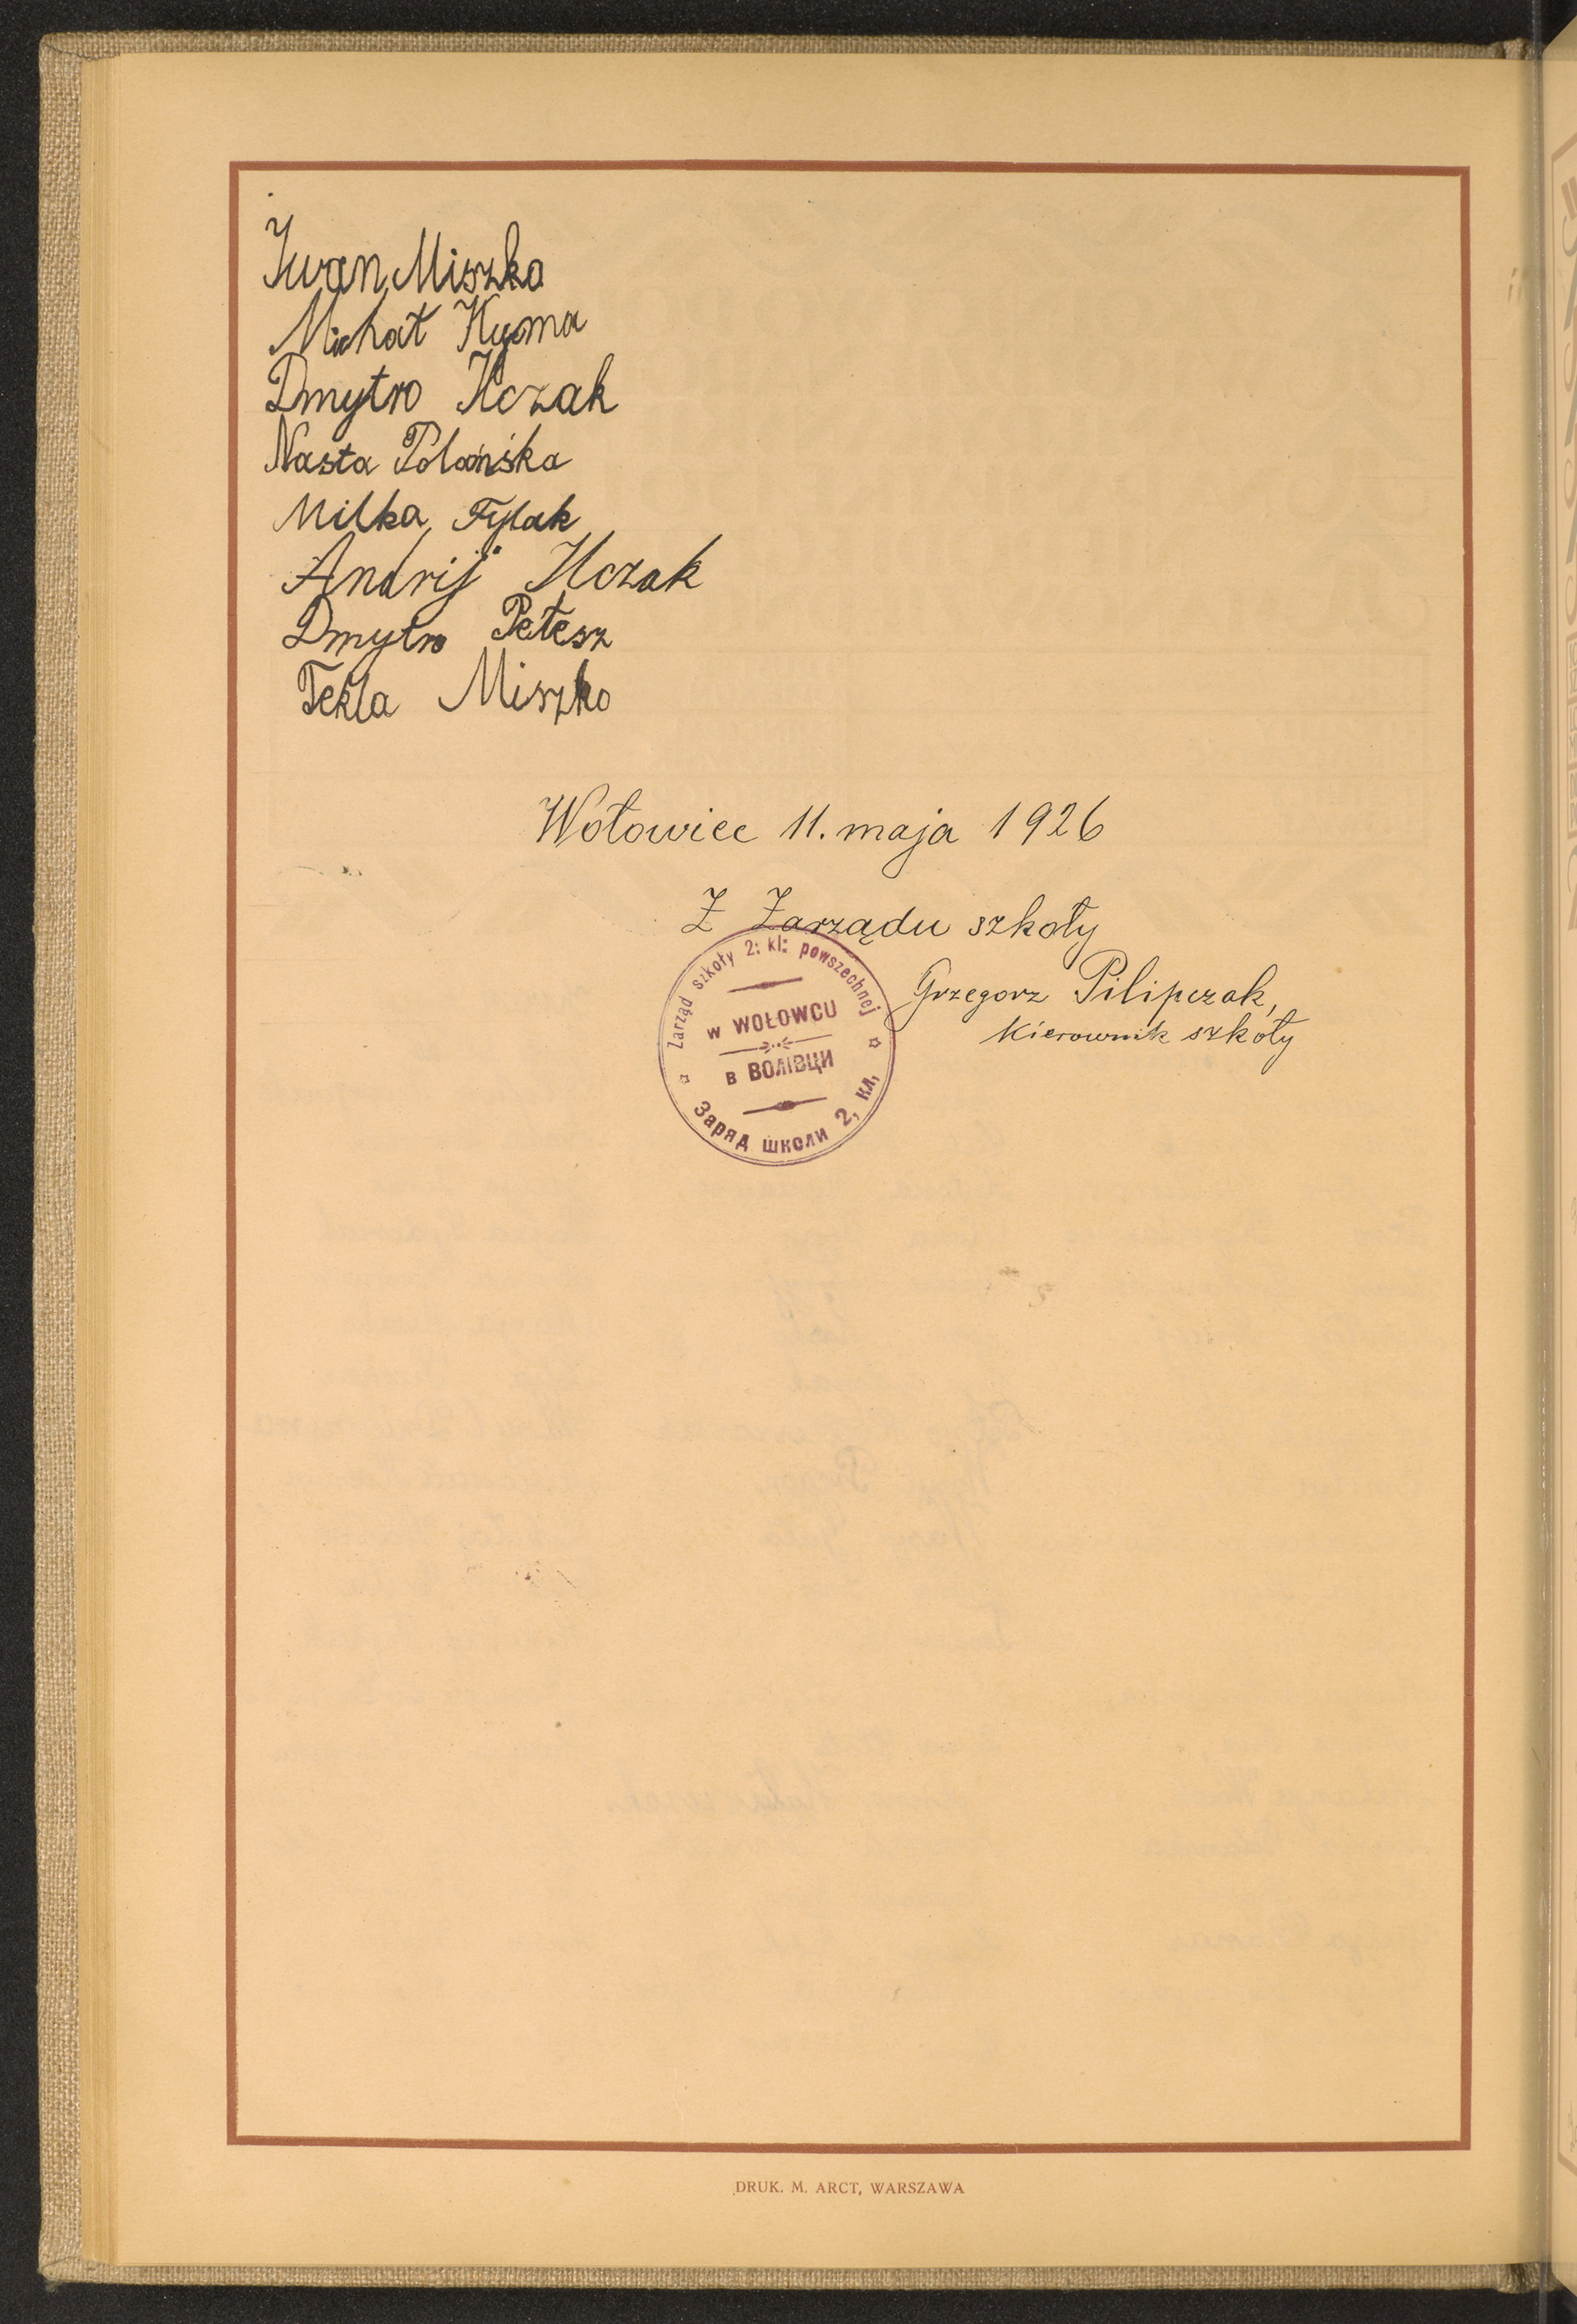 Iwan Miszka
Michał Hyma
Dmytro Ilczak
Nasta Polańska
Milka Fylak
Andrij Ilczak
Dmytro Petesz
Tekla Miszko
Wołowiec 11. maja 1926
Z Zarządu szkoły
Grzegorz Pilipczak,
Kierownik szkoły
Zarząd szkoły 2: kl: powszechnej
w WOŁOWCU
в ВОЛІВЦИ
Заряд школи 2, кл,
DRUK. M. ARCT, WARSZAWA